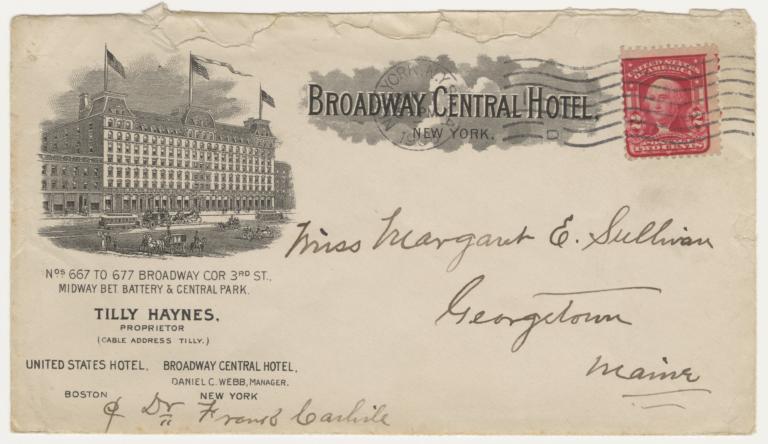 BROADWAY CENTRAL HOTEL.
NEW YORK.
UNITED STATES
OF AMERICA
2 2
POSTAGE
TWO CENTS
YORK, N.Y.
Miss Margaret E. Sullivan
Georgetown
Maine
Nos. 667 TO 677 BROADWAY COR 3RD ST.,
MIDWAY BET. BATTERY & CENTRAL PARK.
TILLY HAYNES,
PROPRIETOR
(CABLE ADDRESS TILLY.)
UNITED STATES HOTEL, BROADWAY CENTRAL HOTEL,
DANIEL C. WEBB, MANAGER.
BOSTON NEW YORK
Dr Frank Carlisle